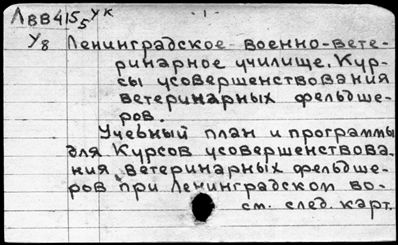 ЛВВ4155 ук
- 1 -
У8 Ленинградское военно-вете-
ринарное училище. Кур-
сы усовершенствования
ветеринарных фельдше-
ров.
Учебный план и программы
для Курсов усовершенствова-
ния ветеринарных фельдше-
ров при Ленинградском во-
см. след. карт.